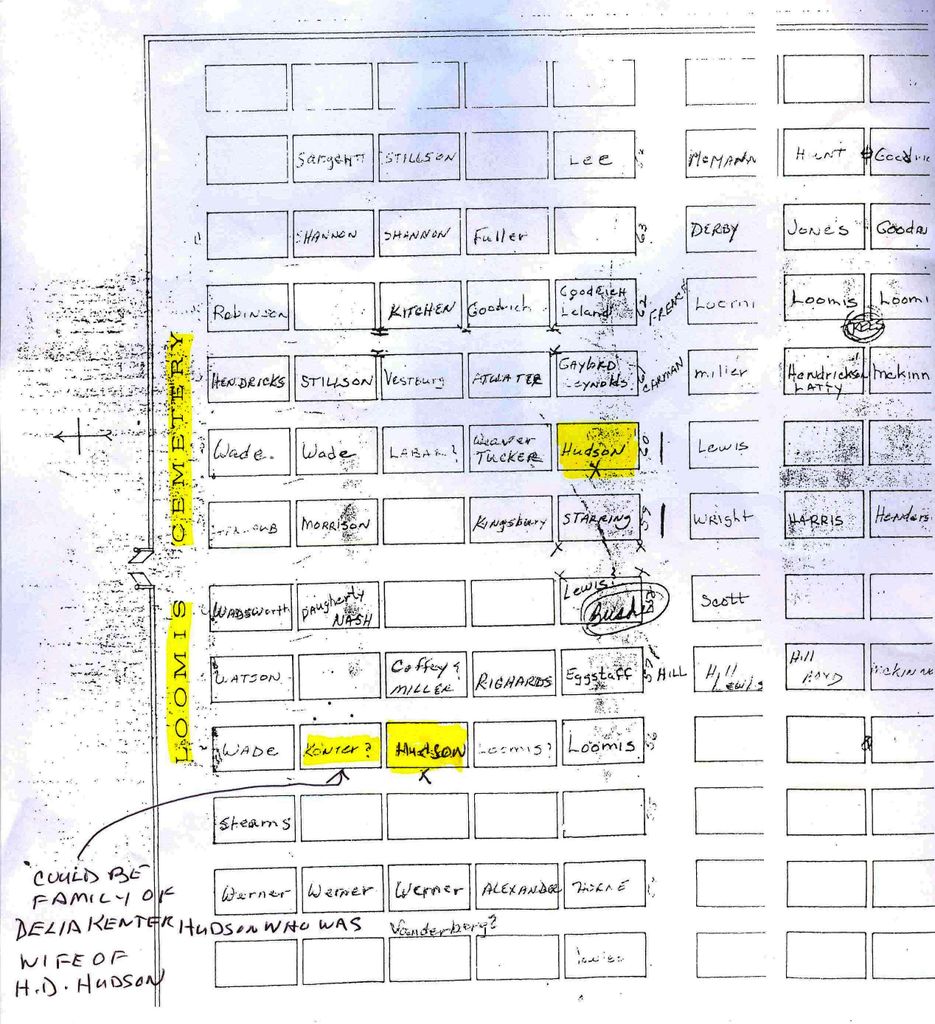 LOOMIS CEMETERY
Sargent STILLSON Lee McMANN HUNT
SHANNON SHANNON Fuller 63 DERBY JONES
Robinson KITCHEN Goodrich Goodrich 62 Loomis
Leland
HENDRICKS STILLSON Vestburg ATWATER GAYLORD 61 CARMAN miller Hendrickson
LATTY
Wade Wade LABAR? Weaver Hudson 60 Lewis
TUCKER X
MORRISON Kingsbury STARRING 59 WRIGHT HARRIS
X X
X X
WADSWORTH Daugherty Lewis? 58 Scott
NASH Bush
WATSON Coffey & RICHARDS Eggstaff 57 HILL Hill Hill
MILLER Lewis BOYD
WADE KONTER? HUDSON Loomis? Loomis 56
X
Stearns
Werner Werner Werner ALEXANDER THORNE
Vanderberg?
COULD BE
FAMILY OF
DELIA KENTER HUDSON WHO WAS
WIFE OF
H.D. HUDSON